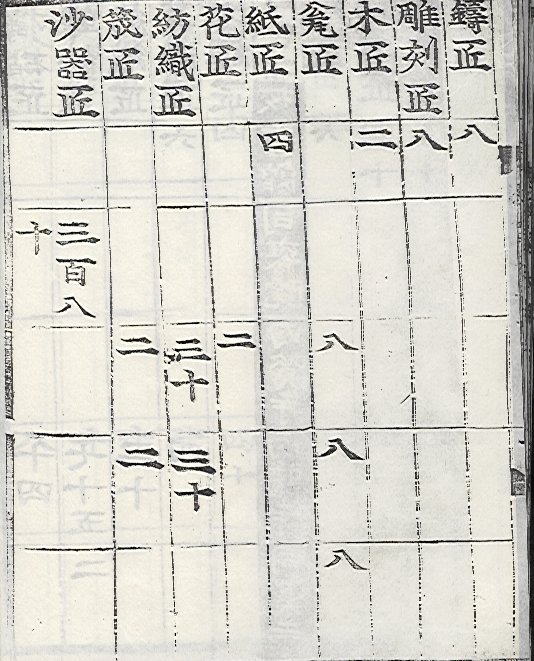 鑄匠 八
雕刻匠 八
木匠 二
瓮匠 八 八 八
紙匠 四
花匠 二
紡織匠 三十 三十
筬匠 二 二
沙器匠 三百八
十